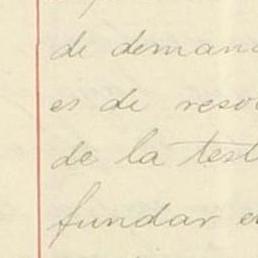 de deman
es de reso
de la test
fundar e